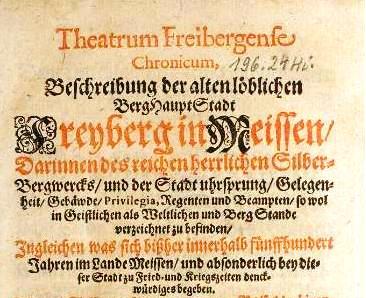 Theatrum Freibergense
Chronicum,
196. 24 Hi.
Beschreibung der alten löblichen
BergHauptStadt
Freyberg in Meissen/
Darinnen des reichen herrlichen Silber-
Bergwercks/ und der Stadt uhrsprung/ Gelegen-
heit/ Gebäwde/ Privilegia, Regenten und Beampten/ so wol
in Geistlichen als Weltlichen und Berg Stande
verzeichnet zu befinden/
Ingleichen was sich bißher innerhalb fünffhundert
Jahren im Lande Meissen/ und absonderlich bey die-
ser Stadt zu Fried- und Kriegszeiten denck-
würdiges begeben.